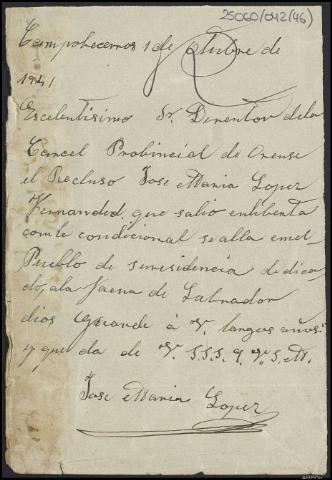 25060/042(46)
Campobecerros 1 de Otubre de
1941
Escelentisimo Sr. Derentor dela
Carcel Probincial de Orense
el Recluso Jose Maria Lopez
Fernanded, que salio enliberta
comte condicional se alla emel
Pueblo de suresidencia dedica
do, ala faena de Labrador
dios Guarde á V. largos años:
y que da de V. S.S.S. q. V. S. M.
Jose Maria
Lopez